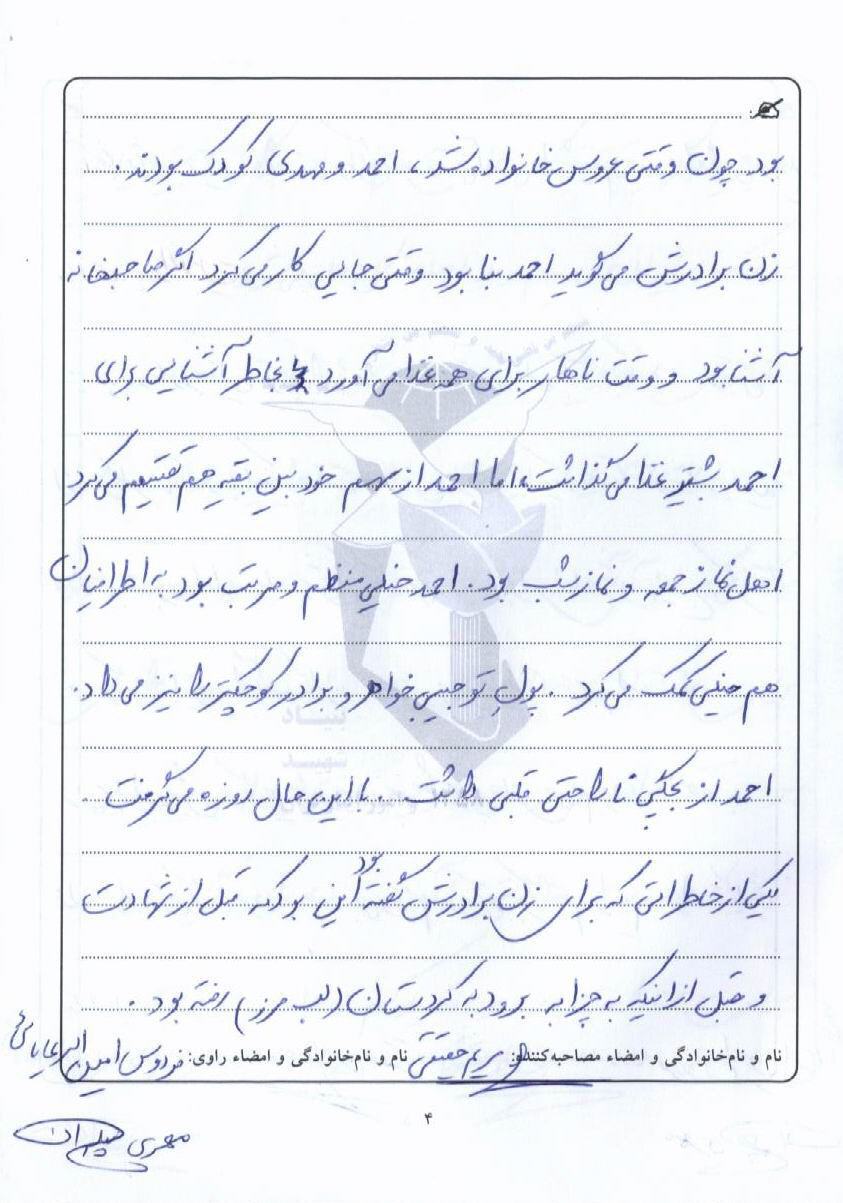 بود چون وقتی عروس خانواده شد، احمد و مهدی کودک بودند.
زن برادرش می‌گوید احمد بنا بود وقتی جایی کار می‌کرد اگر صاحبخانه
آشنا بود و وقت ناهار برای همه غذا می‌آورد بخاطر آشنایی برای
احمد بیشتر غذا می‌گذاشت، اما احمد از سهم خود بین بقیه هم تقسیم می‌کرد
اهل نماز جمعه و نماز شب بود. احمد خیلی منظم و مرتب بود به اطرافیان
هم خیلی کمک می‌کرد. پول تو جیبی خواهر و برادر کوچکتر را نیز می‌داد.
احمد از بچگی ناراحتی قلبی داشت. با این حال روزه می‌گرفت
یکی از خاطراتی که برای زن برادرش گفته بود این بود که قبل از شهادت
و قبل از اینکه به چزابه برود به کردستان (لب مرز) رفته بود.
نام و نام‌خانوادگی و امضاء مصاحبه‌کننده: مریم حقیقی نام و نام‌خانوادگی و امضاء راوی: فردوس امین
۴
مهری
بنیاد
شهید